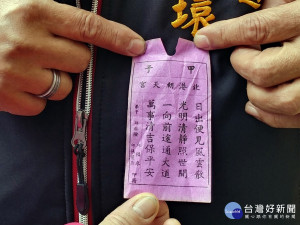 環
甲子
北港朝天宮
日出便見風雲散
光明清靜照世間
一向前途通大道
萬事清吉保平安
台灣好新聞